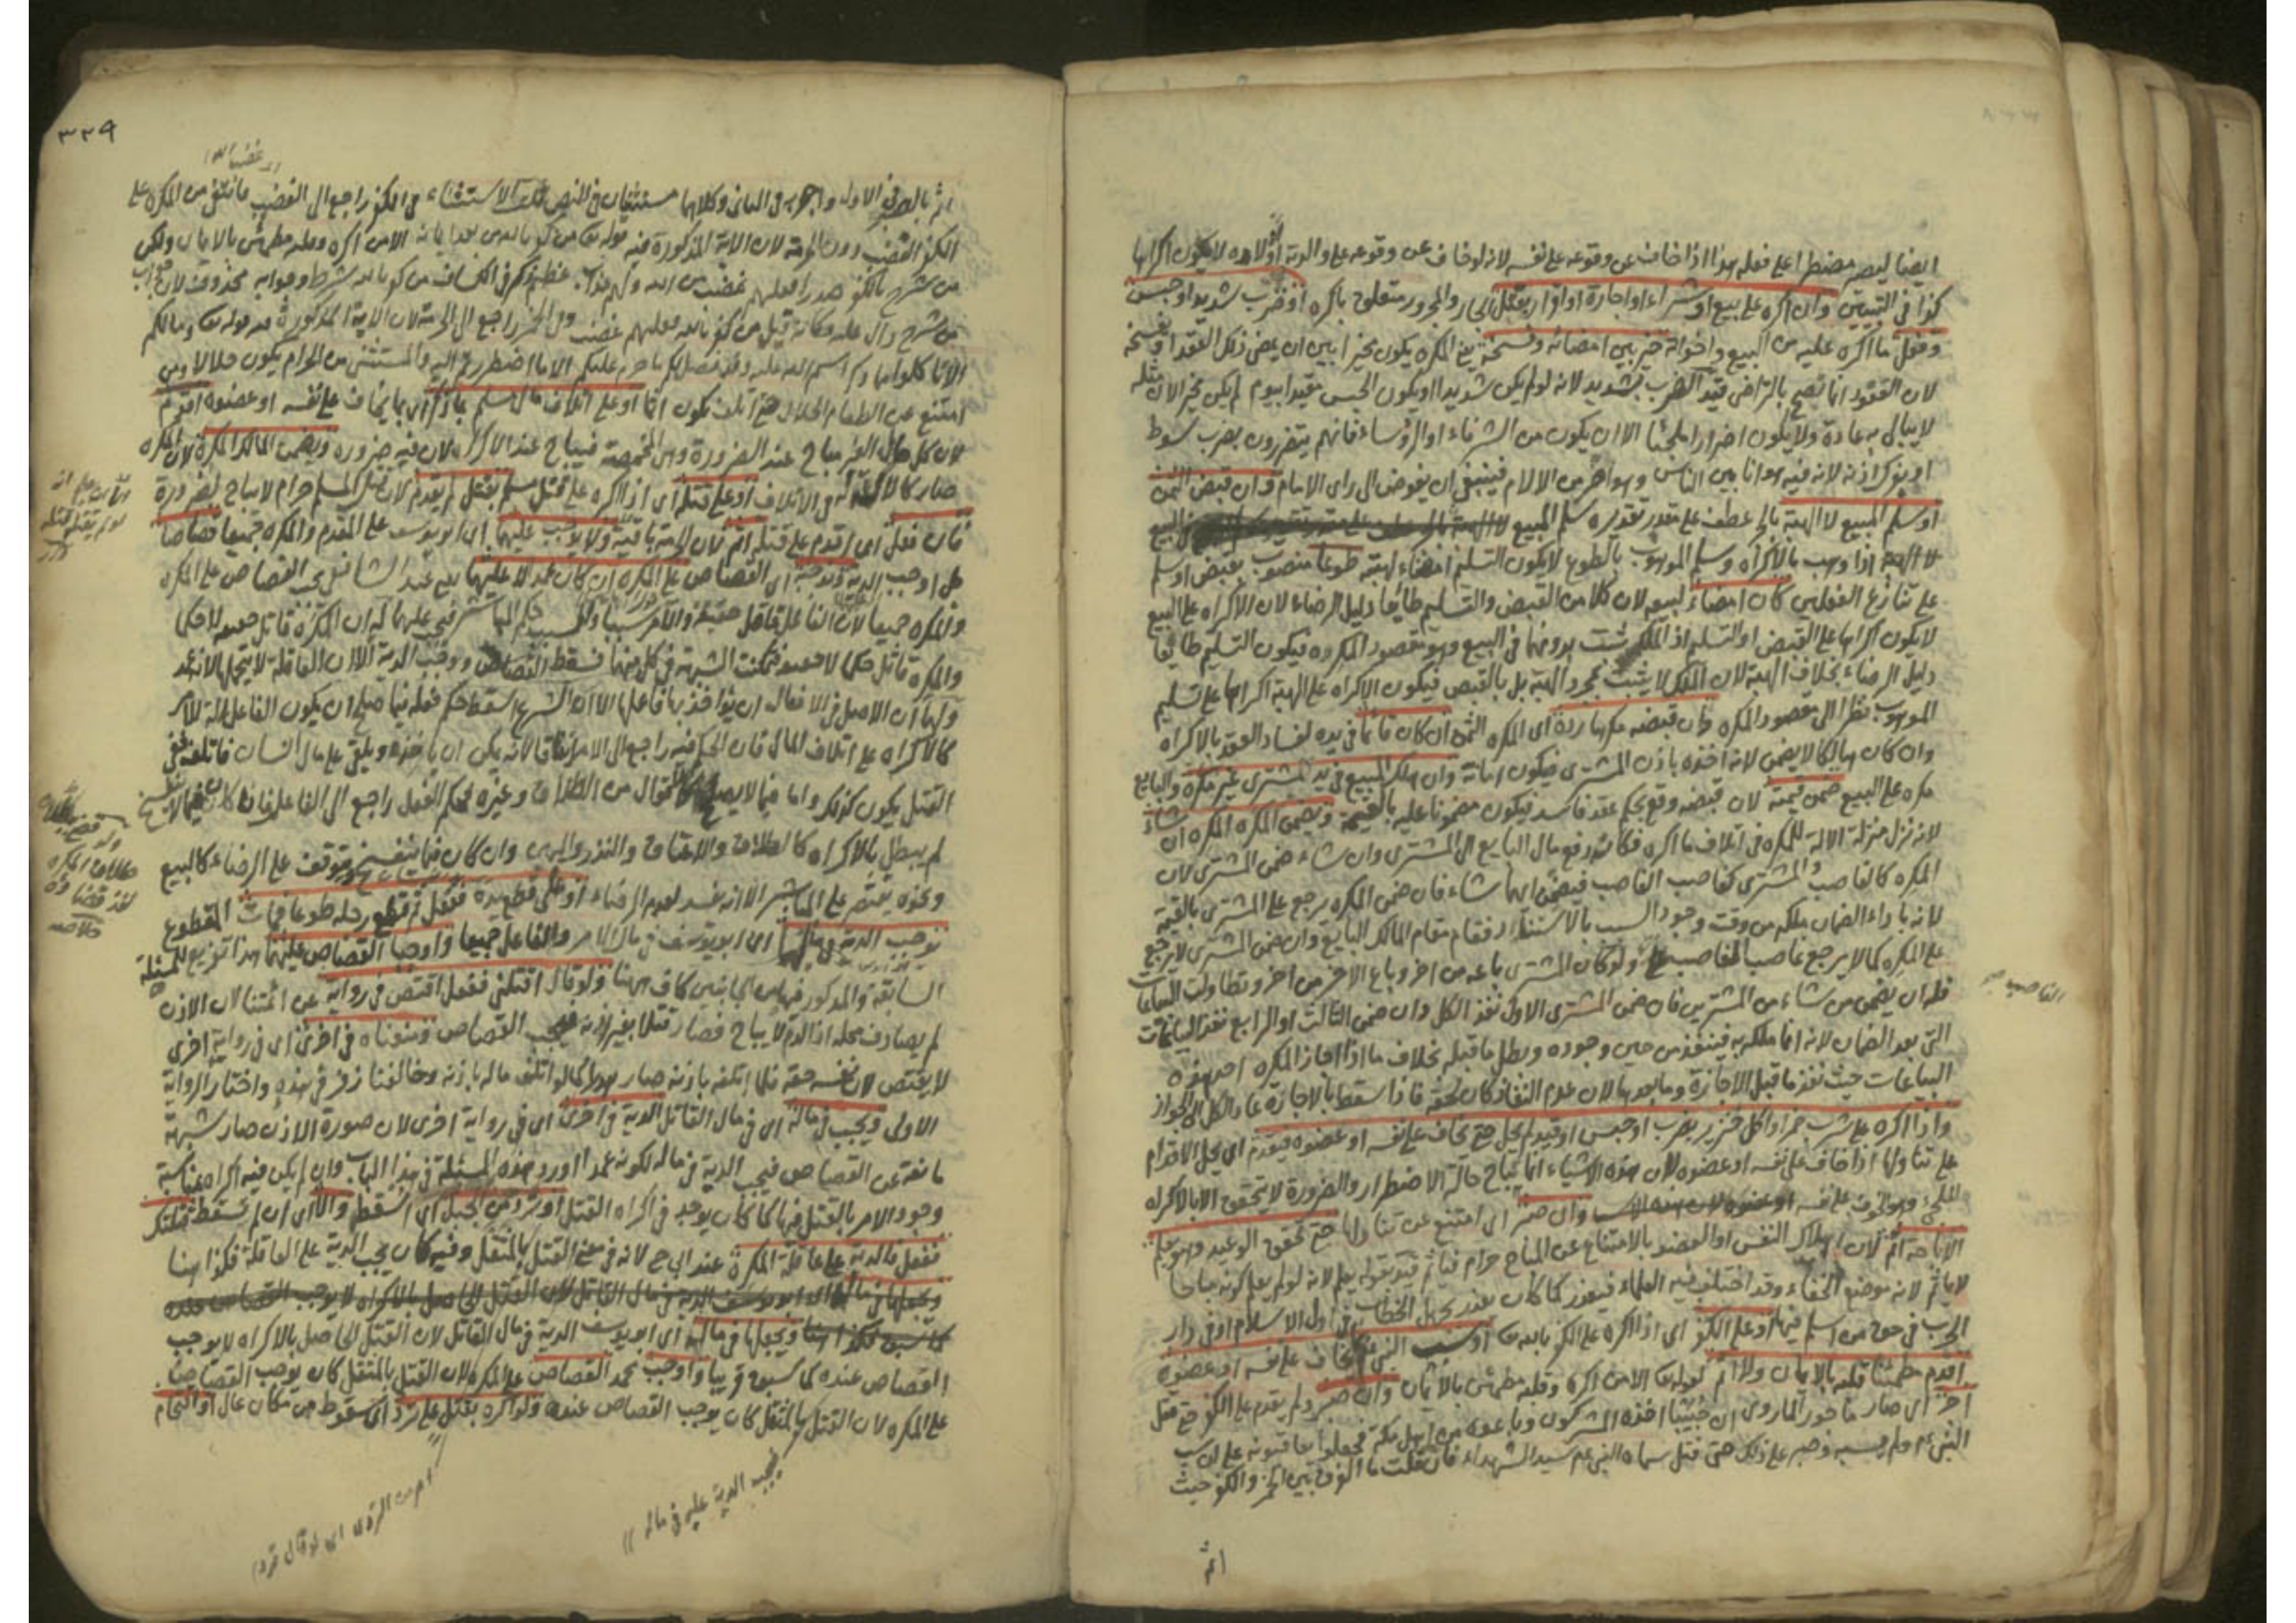 ايضا ليصير مضطرا على فعله هذا اذا خاف عن وقوعه على نفسه لانه لو خاف عن وقوعه على والديه او اولاده لا يكون اكراها
كذا في التبيين وان اكره على بيع او شراء او اجارة او اقرار بقتل الجار والمجرور متعلق باكره او ضرب شديد او حبس
وفعل ما اكره عليه من البيع واخواته خير بين امضائه وفسخه يعني المكره يكون مخيرا بين ان يمضي ذلك العقد او يفسخه
لان العقود انما تصح بالتراضي قيد الضرب بشديد لانه لو لم يكن شديدا او يكون الحبس مقيدا بيوم لم يكن مخيرا لان مثله
لا يبالي به عادة ولا يكون اضرارا ملجئا الا ان يكون من الشرفاء او الرؤساء فانهم يتضررون بضرب سوط
او بفرك اذنه لانه فيه هوانا بين الناس وهو اضر من الآلام فينبغي ان يفوض الى راي الامام وان قبض الثمن
او سلم المبيع لا الهبة بالجر عطف على مقدر تقديره سلم المبيع في البيع
لا الهبة اذا وهب بالاكراه وسلم الموهوب بالطوع لا يكون التسليم امضاء لهبته طوعا منصوب بقبض او سلم
على تنازع الفعلين كان امضاء لبيعه لان كلا من القبض والتسليم طائعا دليل الرضاء لان الاكراه على البيع
لا يكون اكراها على القبض او التسليم اذ الملك يثبت بدونهما في البيع وهو مقصود المكره فيكون التسليم طائعا
دليل الرضاء بخلاف الهبة لان الملك لا يثبت بمجرد الهبة بل بالقبض فيكون الاكراه على الهبة اكراها على تسليم
الموهوب نظرا الى مقصود المكره وان قبضه مكرها رده اى المكره الثمن ان كان قائما في يده لفساد العقد بالاكراه
وان كان هالكا لا يضمن لانه اخذه باذن المشتري فيكون امانة وان هلك المبيع في يد المشتري غير مكره والبايع
مكره على البيع ضمن قيمته لان قبضه وقع بحكم عقد فاسد فيكون مضمونا عليه بالقيمة ويضمن المكره المكره ان شاء
لانه نزل منزلة الآلة للمكره في اتلاف ما اكره فكانه دفع مال البايع الى المشتري وان شاء ضمن المشتري لان
المكره كالغاصب والمشتري كغاصب الغاصب فيضمن ايهما شاء فان ضمن المكره يرجع على المشتري بالقيمة
لانه باداء الضمان ملكه من وقت وجود السبب بالاستناد فقام مقام المالك البايع وان ضمن المشتري لا يرجع
على المكره كما لا يرجع غاصب الغاصب على ولو كان المشتري باعه من اخر وباع الاخر من اخر وتطاولت البياعات
الغاصب صح
فله ان يضمن من شاء من المشترين فان ضمن المشتري الاول نفذ الكل وان ضمن الثالث او الرابع نفذ البياعات
التي بعد الضمان لانه انما ملكه به فينفذ من حين وجوده وبطل ما قبله بخلاف ما اذا اجاز المكره احد هذه
البياعات حيث نفذ ما قبل الاجازة وما بعدها لان عدم النفاذ كان لحقه فاذا سقط بالاجازة عاد الكل الى الجواز
واذا اكره على شرب خمر او اكل خنزير بضرب او حبس او قيد لم يحل حتى يخاف على نفسه او عضوه فيقدم اى يحل الاقدام
على تناولها اذا خاف على نفسه او عضوه لان هذه الاشياء انما يباح حالة الاضطرار والضرورة لا يتحقق الا بالاكراه
الملجئ وهو الخوف على نفسه وان صبر اى امتنع عن تناولها حتى تحقق الوعيد وهو يعلم
الاباحة اثم لان اهلاك النفس او العضو بالامتناع عن المباح حرام فيأثم قيد بقوله يعلم لانه لو لم يعلم كونه مباحا
لا ياثم لانه موضع الخفاء وقد اختلف فيه العلماء فيعذر كما كان يعذر بجهل الخطاب في اول الاسلام او في دار
الحرب في حق من اسلم فيها او على الكفر اى اذا اكره على الكفر بالله تعالى او سب النبي بما يخاف على نفسه او عضوه
اقدم مطمئنا قلبه بالايمان ولا اثم لقوله تعالى الا من اكره وقلبه مطمئن بالايمان وان صبر ولم يقدم على الكفر حتى قتل
اجر اى صار ماجورا لما روى ان خبيبا اخذه المشركون وباعوه من اهل مكة فجعلوا يعاقبونه على ان يسب
النبي عم ولم يسبه وصبر على ذلك حتى قتل سماه النبي عم سيد الشهداء فان قلت ما الفرق بين الخمر والكفر حيث
اثم
٣٣٩
غضب الله
اثم بالصبر في الاول واجر به في الثاني وكلاهما مستثنيان في النص قلت الاستثناء في الكفر راجع الى الغضب فانتفى من المكره على
الكفر الغضب دون الحرمة لان الاية المذكورة فيه قوله تعالى من كفر بالله من بعد ايمانه الا من اكره وقلبه مطمئن بالايمان ولكن
من شرح بالكفر صدرا فعليهم غضب من الله ولهم عذاب عظيم ذكر في الكشاف من كفر بالله شرط وجوابه محذوف لان جواب
من شرح دال عليه وكانه قيل من كفر بالله فعليهم غضب وفي الخمر راجع الى الحرمة لان الاية المذكورة فيه قوله تعالى وما لكم
الا تاكلوا مما ذكر اسم الله عليه وقد فصل لكم ما حرم عليكم الا ما اضطررتم اليه والمستثنى من الحرام يكون حلالا ومن
امتنع عن الطعام الحلال حتى تلف يكون اثما او على اتلاف مال مسلم بما ذكر اى بما يخاف على نفسه او عضوه اقدم
لان اكل مال الغير مباح عند الضرورة وهي المخمصة فيباح عند الاكراه لان فيه ضرورة ويضمن المالك المكره لان المكره
صار كالالة له في الاتلاف او على قتله اى اذا اكره على قتل مسلم بقتل لم يقدم لان قتل المسلم حرام لا يباح لضرورة
فان فعل اى اقدم على قتله اثم لان الحرمة باقية ولا يوجب عليهما اى ابو يوسف على المقدم والمكره جميعا قصاصا
بل اوجب الدية ويوجبه اى القصاص على المكره ان كان عمدا لا عليهما يعني عند الشافعي يجب القصاص على المكره
والمكره جميعا لان الفاعل قاتل حقيقة والآمر سببا وللسبب حكم المباشر فيجب عليهما له ان المكره قاتل حقيقة لا حكما
والمكره قاتل حكما لا حقيقة فتمكنت الشبهة في كل منهما فسقط القصاص ووجب الدية الا ان العاقلة لا يتحمل لانه عمد
ولهما ان الاصل في الافعال ان يؤاخذ بها فاعلها الا ان الشرع اسقط حكم فعله فيما صلح ان يكون الفاعل الة للآمر
كالاكراه على اتلاف المال فان الحكم فيه راجع الى الامر اتفاقا لانه يمكن ان ياخذه ويلقى على مال انسان فاتلفه ففي
القتل يكون كذلك واما فيما لا يصلح كالاقوال من الطلاق وغيره فحكم الفعل راجع الى الفاعل فاذا كان مما لا ينفسخ
لم يبطل بالاكراه كالطلاق والاعتاق والنذر واليمين وان كان مما ينفسخ ويتوقف على الرضاء كالبيع
ونحوه يقتصر على المباشر الا انه يفسد لعدم الرضاء او على قطع يده ففعل ثم قطع رجله طوعا فمات المقطوع
يوجب الدية في مالهما اى ابو يوسف في مال الآمر والفاعل جميعا واوجبا القصاص عليهما هذا توزيع للمسئلة
السابقة والمذكور فيها من الجانبين كاف ههنا ولو قال اقتلني ففعل اقتص في رواية عن ائمتنا لان الاذن
لم يصادف محله اذ الدم لا يباح فصار قتلا بغير اذنه فيجب القصاص ومنعناه في اخرى اى في رواية اخرى
لا يقتص لان نفسه حقه فلما اتلفه باذنه صار هدرا كما لو اتلف ماله باذنه وخالفنا زفر في هذه واختار الرواية
الاولى ويجب في ماله اى في مال القاتل الدية في اخرى اى في رواية اخرى لان صورة الاذن صار شبهة
مانعة عن القصاص فيجب الدية في ماله لكونه عمدا اورد هذه المسئلة في هذا الباب وان لم يكن فيه اكراه لمناسبة
وجود الامر بالقتل فيها كما كان يوجد في اكراه القتل او ترد من الجبل اى اسقط والا اى ان لم تسقط قتلتك
ففعل فالدية على عاقلة المكره عند ابي ح لانه في معنى القتل بالمثقل وفيه كان يجب الدية على العاقلة فكذا هنا
ويجعلها في ماله اى ابو يوسف الدية في مال القاتل لان القتل الحاصل بالاكراه لا يوجب
القصاص عنده كما سبق قريبا واوجب محمد القصاص على المكره لان القتل بالمثقل كان يوجب القصاص
على المكره لان القتل بالمثقل كان يوجب القصاص عنده ولو اكره بقتل على ترد اى سقوط من مكان عال او اقتحام
فيجب الدية عليه في ماله
امر من التردي اى لو قال تردا